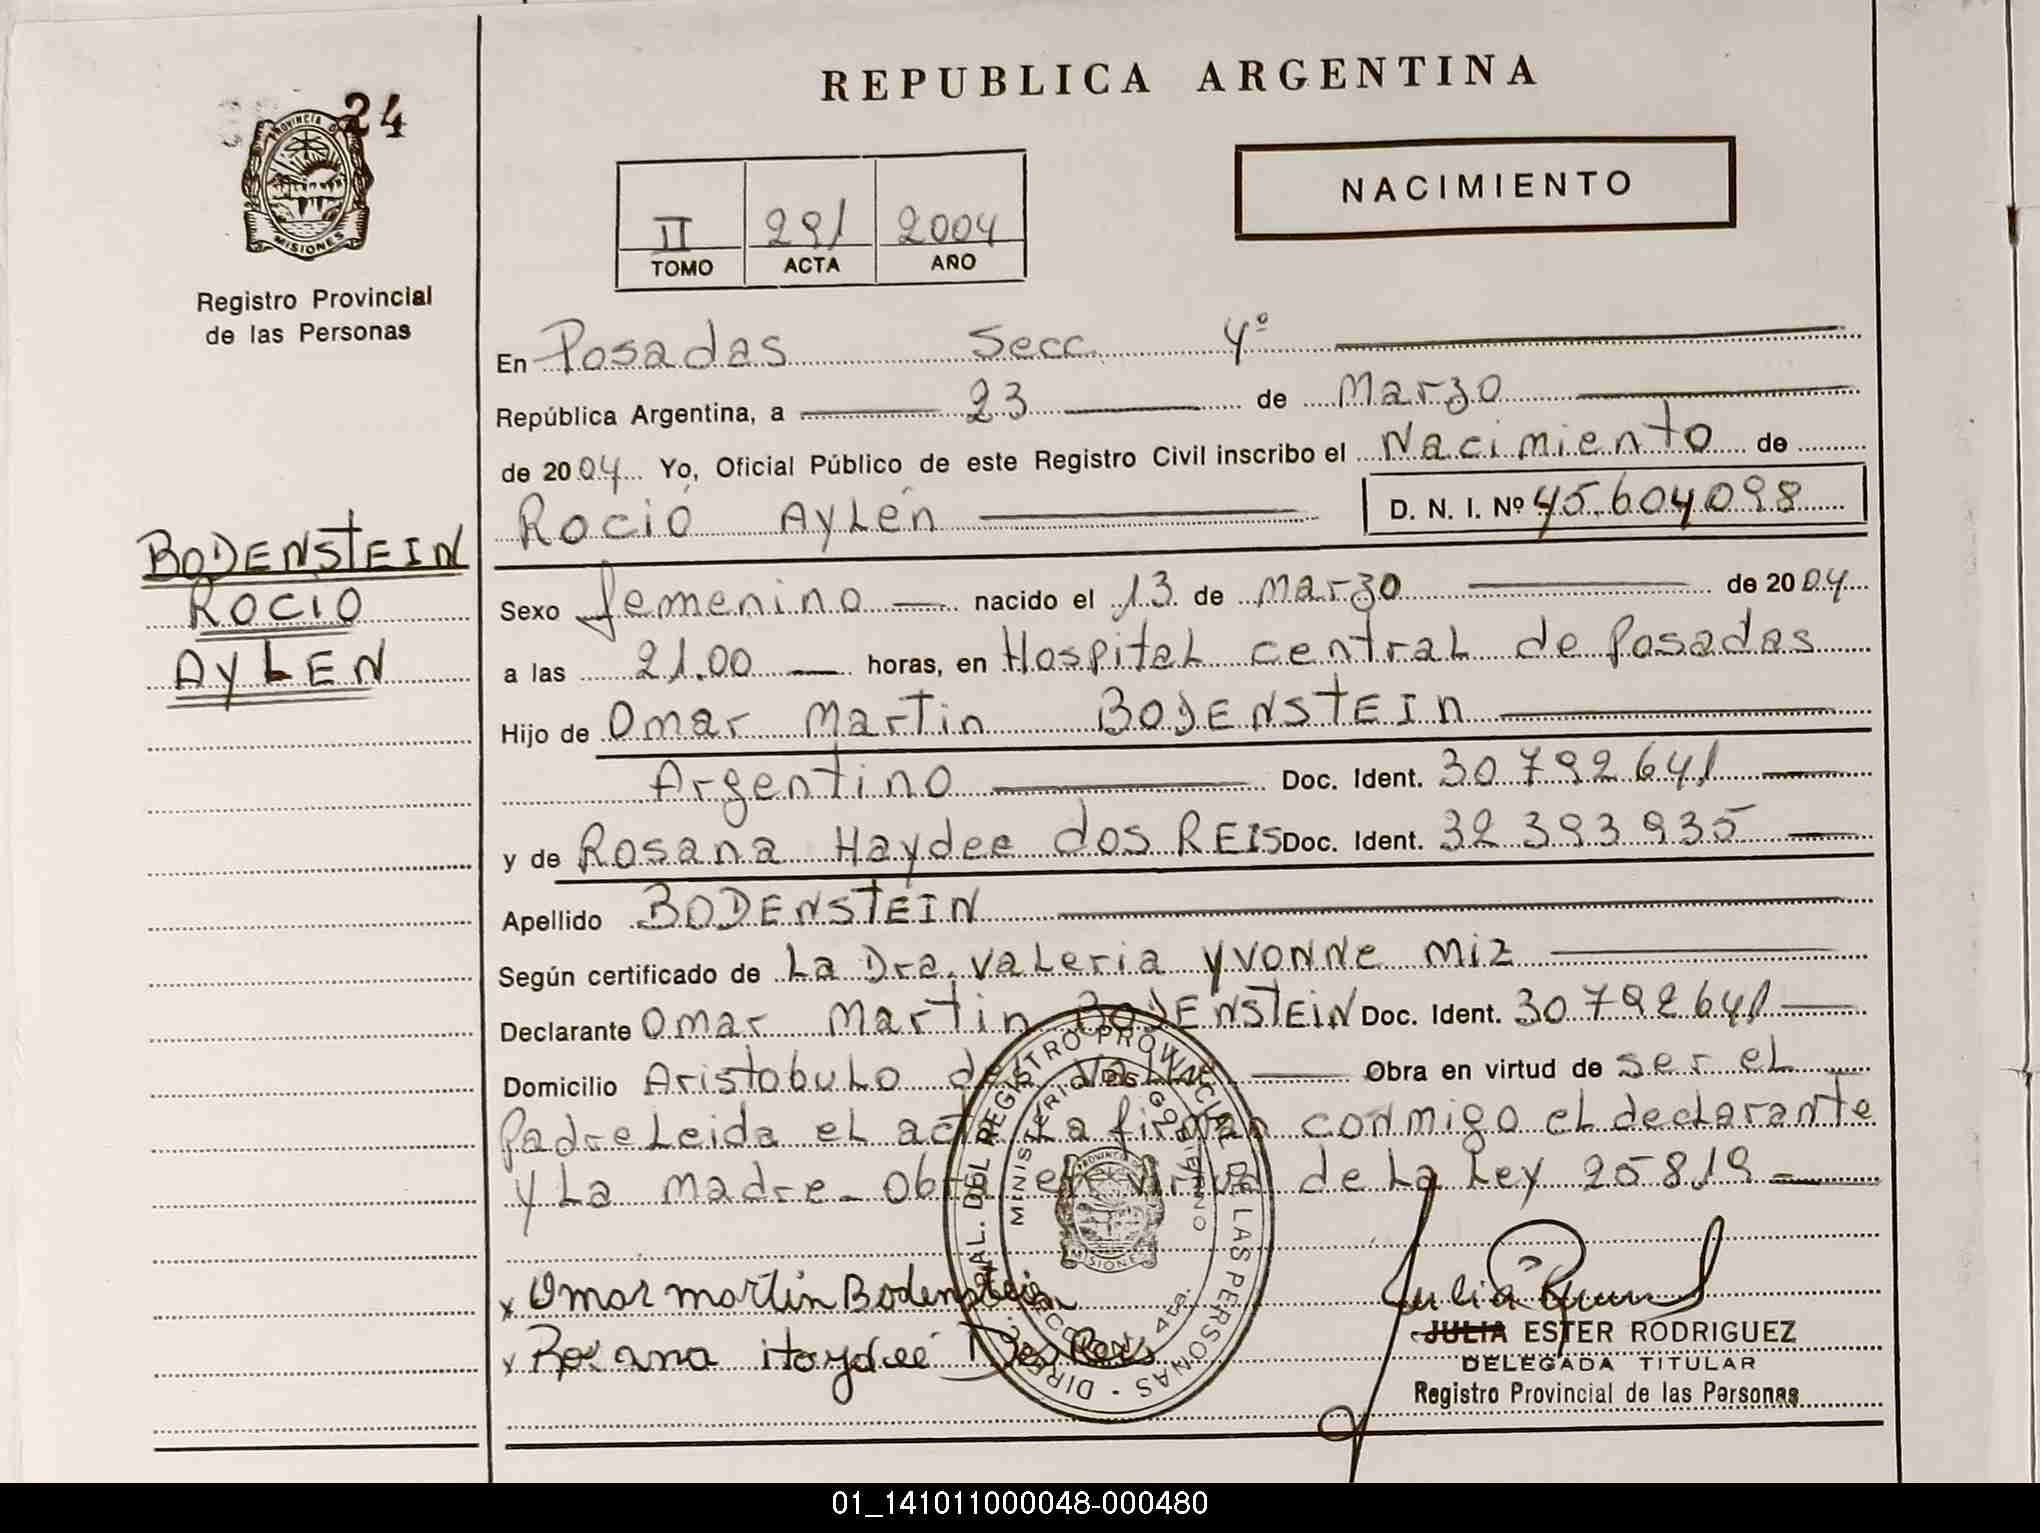 REPUBLICA ARGENTINA
24
PROVINCIA DE
MISIONES
Registro Provincial
de las Personas
NACIMIENTO
II 291 2004
TOMO ACTA AÑO
En Posadas Secc. 4º
República Argentina, a 23 de Marzo
de 2004 Yo, Oficial Público de este Registro Civil inscribo el Nacimiento de
Roció Aylén D. N. I. Nº 45.604098
BODENSTEIN
ROCIO
AYLEN
Sexo femenino nacido el 13 de Marzo de 2004
a las 21.00 horas, en Hospital central de Posadas
Hijo de Omar Martin BODENSTEIN
Argentino Doc. Ident. 30792641
y de Rosana Haydee dos REIS Doc. Ident. 32393935
Apellido BODENSTEIN
Según certificado de La Dra. Valeria Yvonne Miz
Declarante Omar Martin BODENSTEIN Doc. Ident. 30792641
Domicilio Aristobulo del Valle Obra en virtud de ser el
Padre Leida el acta La firman conmigo el declarante
y La Madre - Obra en virtud de La Ley 25819
DIREC. GRAL. DEL REGISTRO PROVINCIAL DE LAS PERSONAS
MINISTERIO DE GOBIERNO
PROVINCIA DE
MISIONES
SECCION 4ta.
x Omar martin Bodenstein
x Rosana Haydeé Dos Reis
JULIA ESTER RODRIGUEZ
DELEGADA TITULAR
Registro Provincial de las Personas
01_141011000048-000480